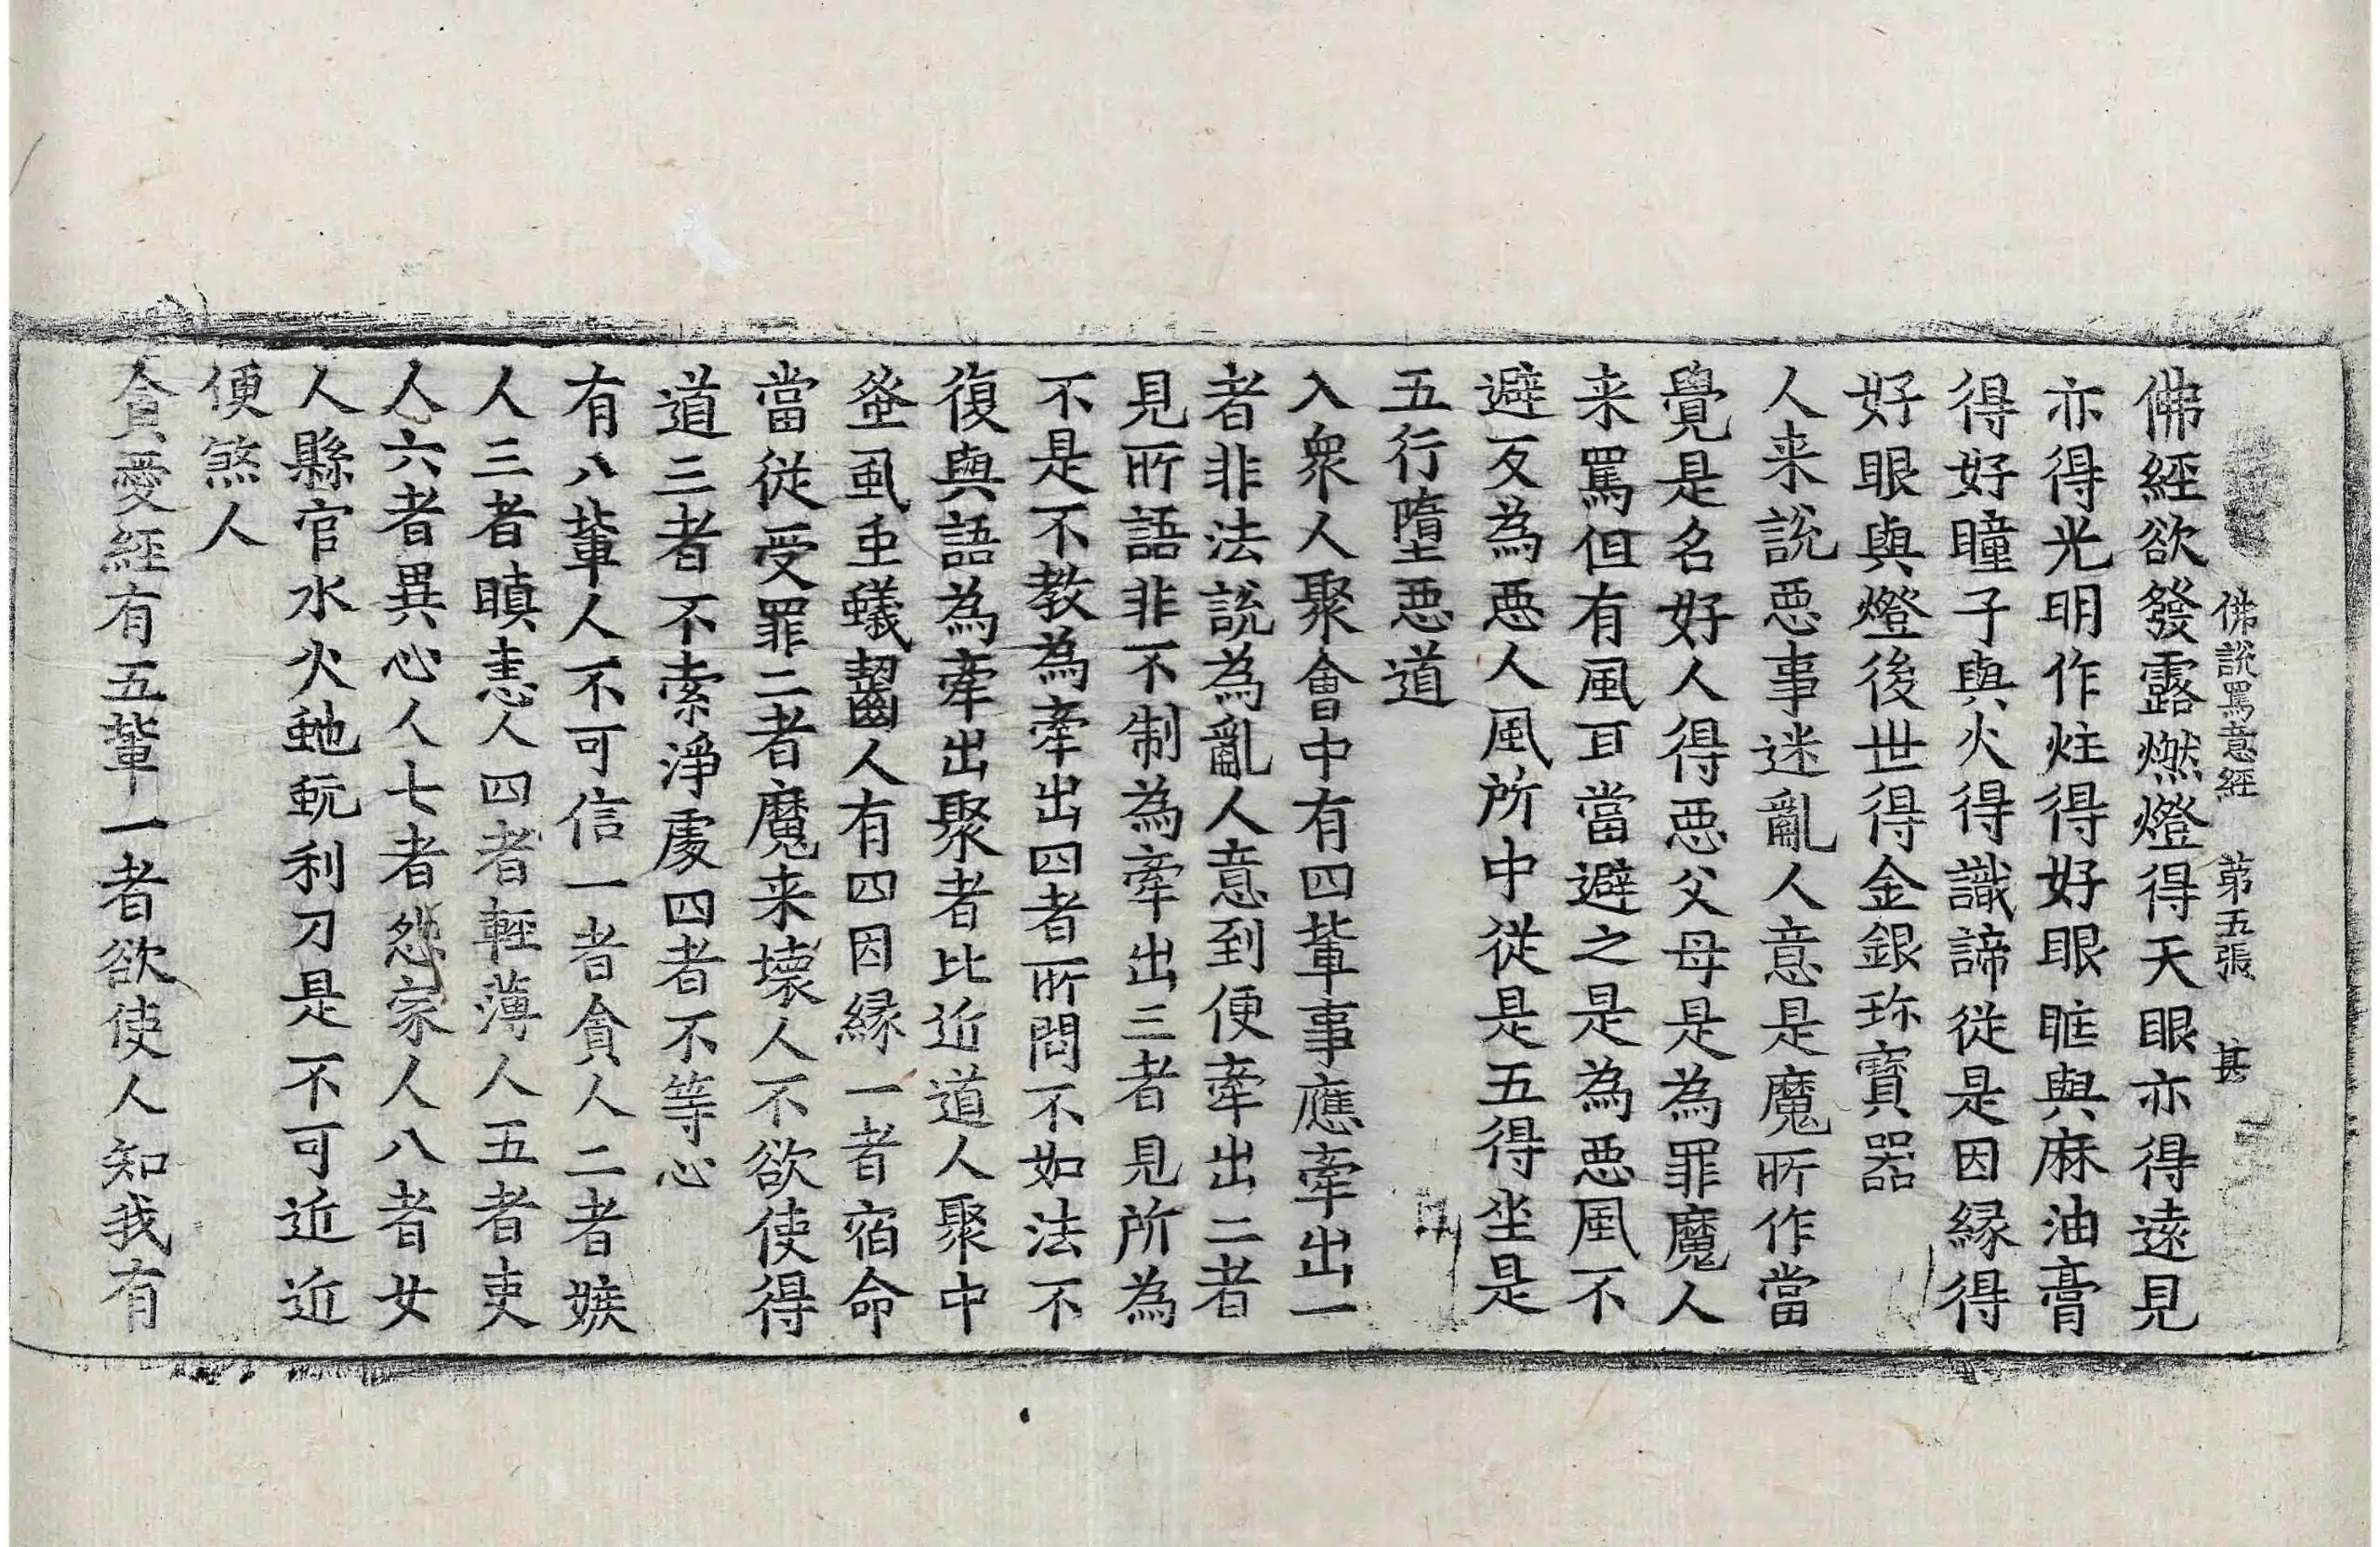 佛說罵意經　第五張　甚
佛經欲發露燃燈得天眼亦得遠見
亦得光明作炷得好眼眶與麻油膏
得好瞳子與火得識諦從是因縁得
好眼與燈後世得金銀珎寶器
人来說惡事迷亂人意是魔所作當
覺是名好人得惡父母是為罪魔人
来罵但有風耳當避之是為惡風不
避反為惡人風所中從是五得坐是
五行墮惡道
入衆人聚會中有四輩事應牽出一
者非法說為亂人意到便牽出二者
見所語非不制為牽出三者見所為
不是不教為牽出四者所問不如法不
復與語為牽出聚者比近道人聚中
蚤虱䖝蟻齧人有四因縁一者宿命
當從受罪二者魔来壞人不欲使得
道三者不索淨處四者不等心
有八輩人不可信一者貪人二者嫉
人三者瞋恚人四者輕薄人五者吏
人六者異心人七者怨家人八者女
人縣官水火虵蚖利刀是不可近近
便煞人
貪愛經有五輩一者欲使人知我有